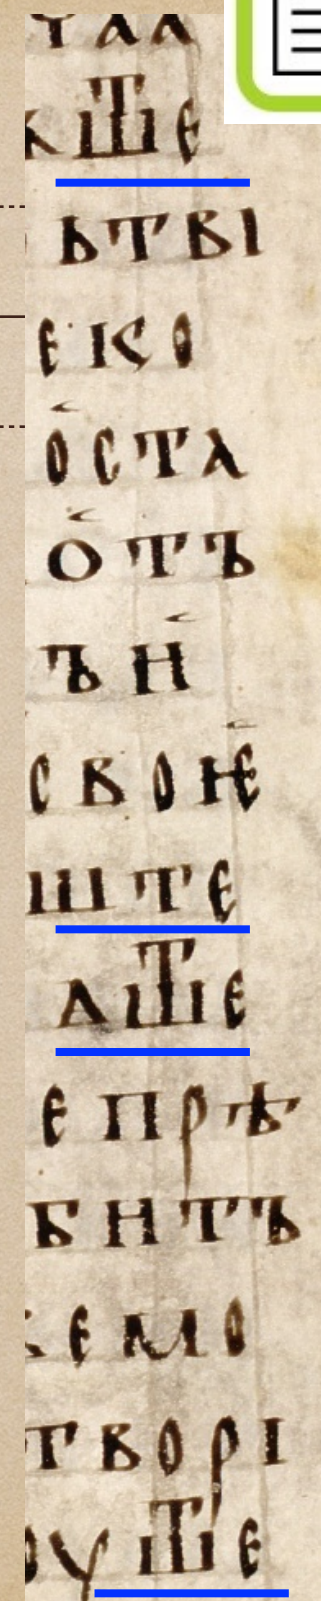 ѵаа
к ш҃те
ьтві
еко
о҆ста
о҆тъ
ън҆
своѥ҆
ште
аш҃те
е прѣ
бнтъ
жемо
творі
оуш҃те